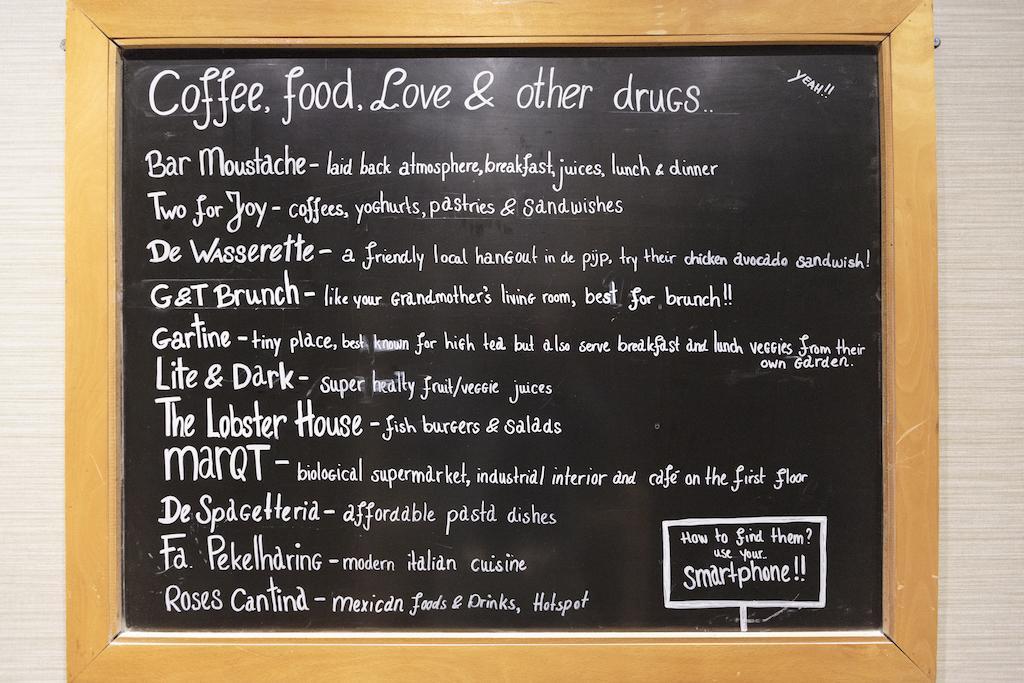 Coffee, food, Love & other drugs..
YEAH!!
Bar Moustache - laid back atmosphere, breakfast, juices, lunch & dinner
Two for Joy - coffees, yoghurts, pastries & sandwishes
De Wasserette - a friendly local hangout in de pijp, try their chicken avocado sandwish!
G&T Brunch - like your grandmother's living room, best for brunch!!
Gartine - tiny place, best known for high tea but also serve breakfast and lunch veggies from their
own garden.
Lite & Dark - super healty fruit/veggie juices
The Lobster House - fish burgers & salads
MARQT - biological supermarket, industrial interior and café on the first floor
De Spagetteria - affordable pasta dishes
Fa. Pekelharing - modern italian cuisine
Roses Cantina - mexican foods & Drinks, Hotspot
How to find them?
use your..
smartphone!!